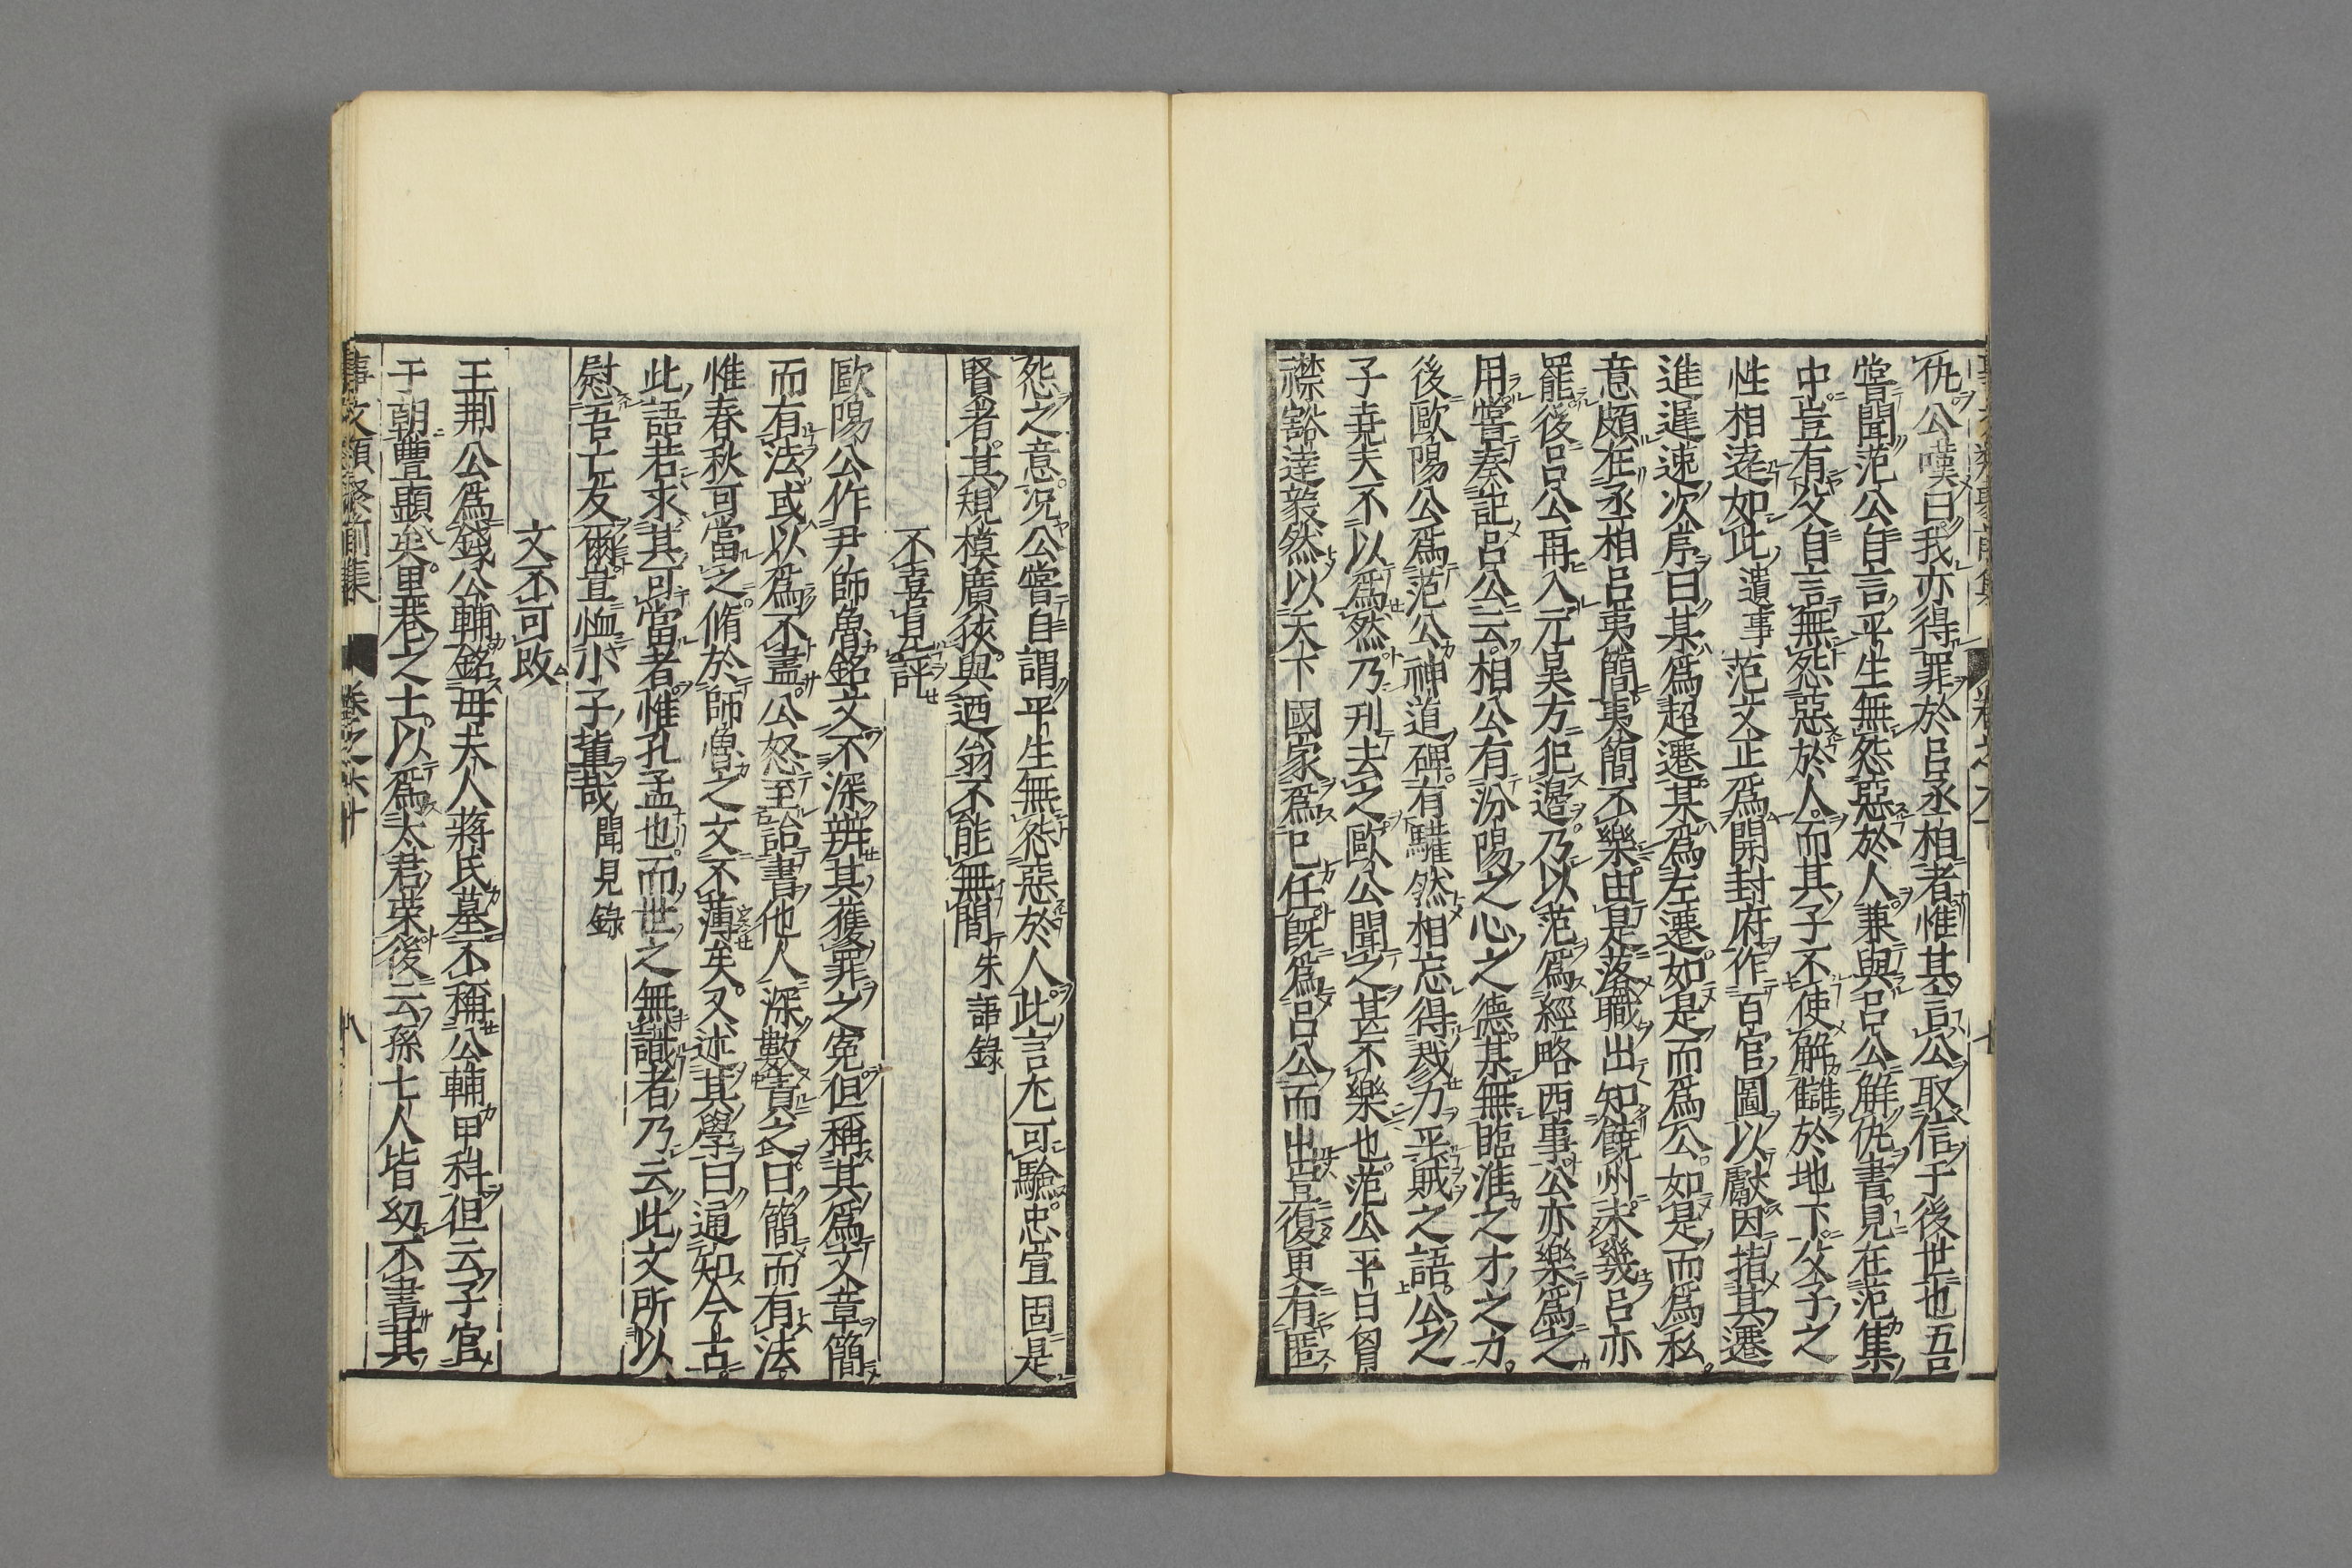 仇公嘆曰我亦得罪於呂丞相者惟其言公取信于後世也吾
嘗聞范公自言平生無怨惡於人兼與呂公解仇書見在范集
中豈有父自言無怨惡於人而其子不使解讎於地下父子之
性相逺如此遺事范文正爲開封府作百官圖以獻因指其遷
進遅速次序曰某爲超遷某爲左遷如是而爲公如是而爲私
意頗在丞相呂夷簡夷簡不樂由是落職出知饒州未幾呂亦
罷後呂公再入元昊方犯邉乃以范爲經略西事公亦樂爲之
用嘗奏記呂公云相公有汾陽之心之德某無臨淮之才之力
後歐陽公爲范公神道碑有驩然相忘得戮力平賊之語公之
子尭夫不以爲然乃刊去之歐公聞之甚不樂也范公平日胷
襟豁達毅然以天下國家爲已任旣爲呂公而出豈復更有匿
怨之意况公嘗自謂平生無怨惡於人此言尤可驗忠宣固是
賢者其規模廣狹與廼翁不能無間朱語錄
不喜見評
歐陽公作尹師魯銘文不深辨其獲罪之寃但稱其爲文章簡
而有法或以爲不盡公怒至詒書他人深數責之曰簡而有法
惟春秋可當之脩於師魯之文不薄矣又述其學曰通知今古
此語若求其可當者惟孔孟也而世之無識者乃云此文所以
慰吾亡友爾豈恤小子軰哉聞見錄
文不可改
王荆公爲錢公輔銘母夫人蔣氏墓不稱公輔甲科但云子官
于朝豐顯矣里巷之士以爲太君榮後云孫七人皆幼不書其
事文類聚前集 卷之六十 八